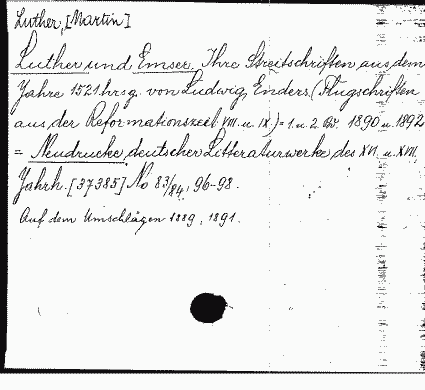 Luther, [Martin]
Luther und Emser. Ihre Streitschriften aus dem
Jahre 1521 hrsg. von Ludwig Enders. (Flugschriften
aus der Reformationszeit VIII. u. IX.) = 1. u. 2. Bd. 1890 u. 1892
= Neudrucke deutscher Litteraturwerke des XVI. u. XVII.
Jahrh. [37385] No 83/84, 96-98.
Auf dem Umschlägen 1889, 1891.